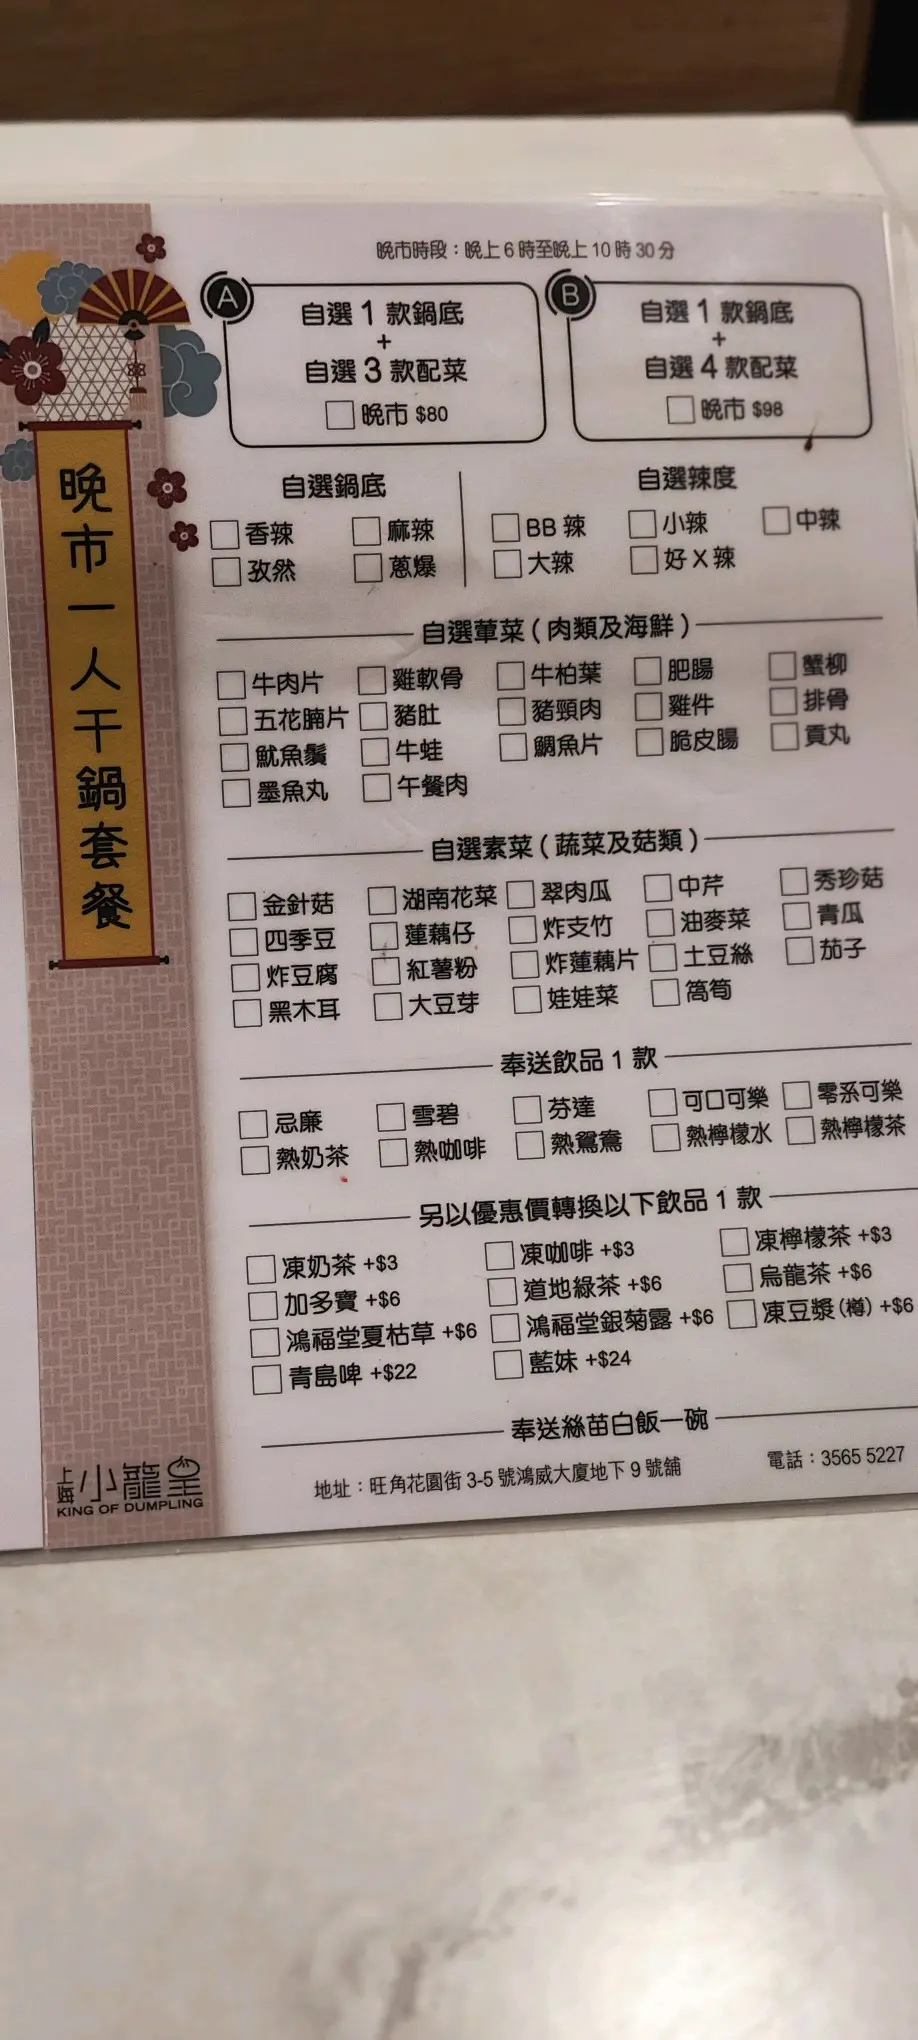 晚市一人干鍋套餐
晚市時段：晚上 6 時至晚上 10 時 30 分
A
自選 1 款鍋底
+
自選 3 款配菜
晚市 $80
B
自選 1 款鍋底
+
自選 4 款配菜
晚市 $98
自選鍋底
香辣 麻辣
孜然 蔥爆
自選辣度
BB 辣 小辣 中辣
大辣 好 X 辣
自選葷菜 ( 肉類及海鮮 )
牛肉片 雞軟骨 牛柏葉 肥腸 蟹柳
五花腩片 豬肚 豬頸肉 雞件 排骨
魷魚鬚 牛蛙 鯛魚片 脆皮腸 貢丸
墨魚丸 午餐肉
自選素菜 ( 蔬菜及菇類 )
金針菇 湖南花菜 翠肉瓜 中芹 秀珍菇
四季豆 蓮藕仔 炸支竹 油麥菜 青瓜
炸豆腐 紅薯粉 炸蓮藕片 土豆絲 茄子
黑木耳 大豆芽 娃娃菜 萵筍
奉送飲品 1 款
忌廉 雪碧 芬達 可口可樂 零系可樂
熱奶茶 熱咖啡 熱鴛鴦 熱檸檬水 熱檸檬茶
另以優惠價轉換以下飲品 1 款
凍奶茶 +$3 凍咖啡 +$3 凍檸檬茶 +$3
加多寶 +$6 道地綠茶 +$6 烏龍茶 +$6
鴻福堂夏枯草 +$6 鴻福堂銀菊露 +$6 凍豆漿 (樽) +$6
青島啤 +$22 藍妹 +$24
奉送絲苗白飯一碗
地址：旺角花園街 3-5 號鴻威大廈地下 9 號舖 電話：3565 5227
上海小籠皇
KING OF DUMPLING